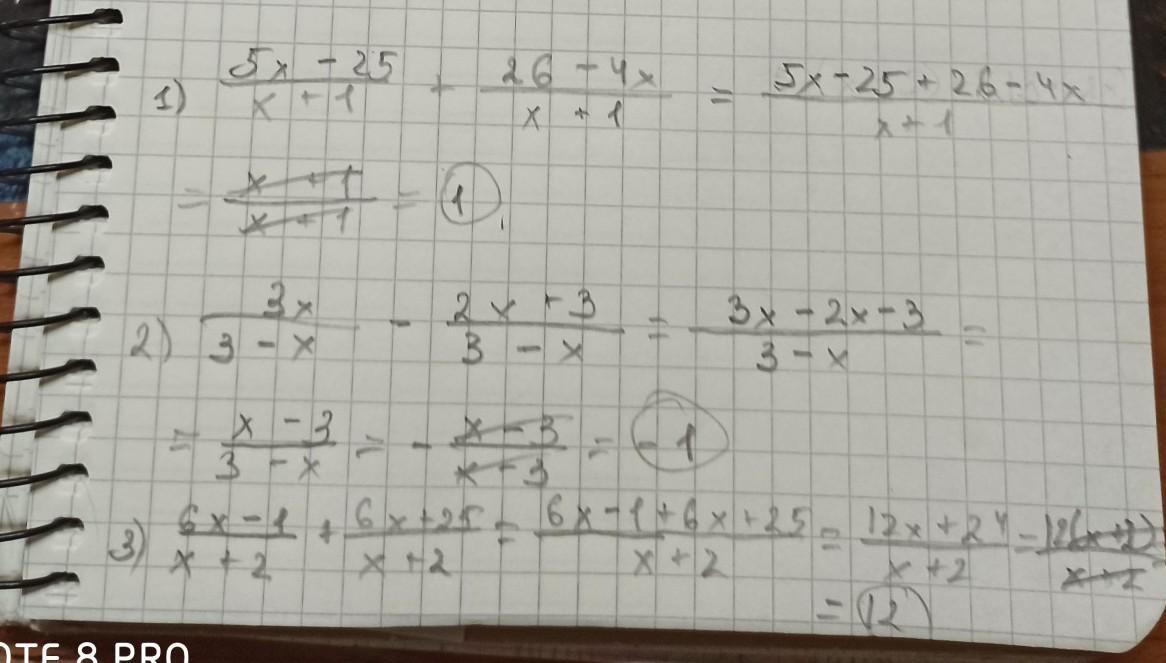 1) (5x - 25)/(x + 1) + (26 - 4x)/(x + 1) = (5x - 25 + 26 - 4x)/(x + 1)
= (x + 1)/(x + 1) = 1
2) 3x/(3 - x) - (2x + 3)/(3 - x) = (3x - 2x - 3)/(3 - x) =
= (x - 3)/(3 - x) = - (x - 3)/(x - 3) = -1
3) (6x - 1)/(x + 2) + (6x + 25)/(x + 2) = (6x - 1 + 6x + 25)/(x + 2) = (12x + 24)/(x + 2) = 12(x + 2)/(x + 2)
= 12
OTE 8 PRO